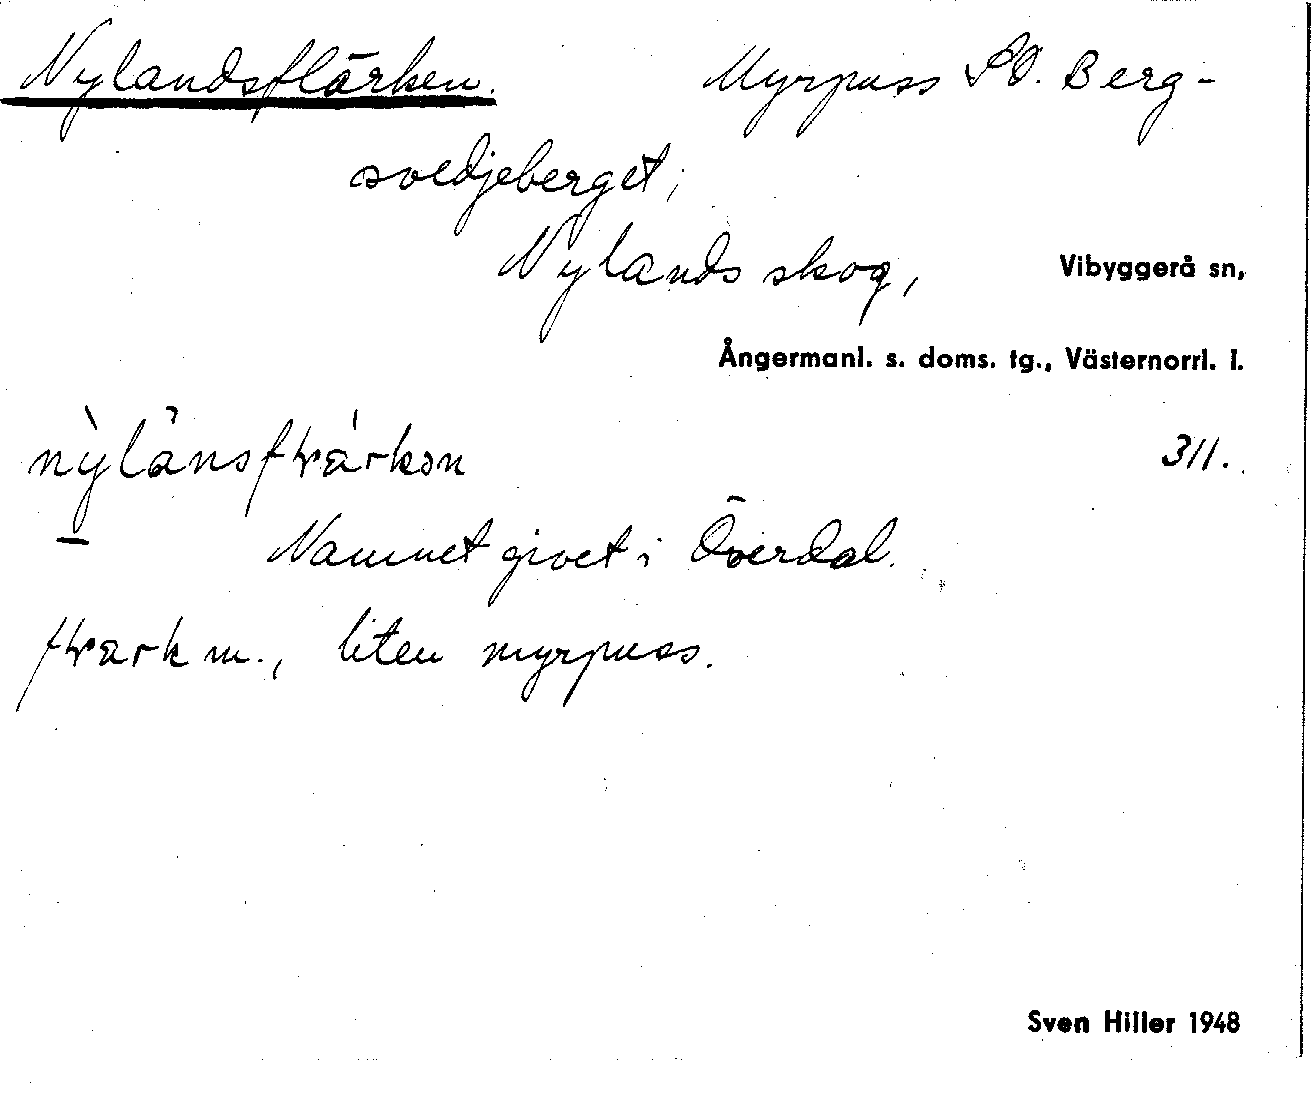 Nylandsflärken. Myrpuss SO. Berg-
svedjeberget;
Nylands skog, Vibyggerå sn,
Ångermanl. s. doms. tg., Västernorrl. l.
311.
Namnet givet i Överdal.
m., liten myrpuss.
Sven Hiller 1948